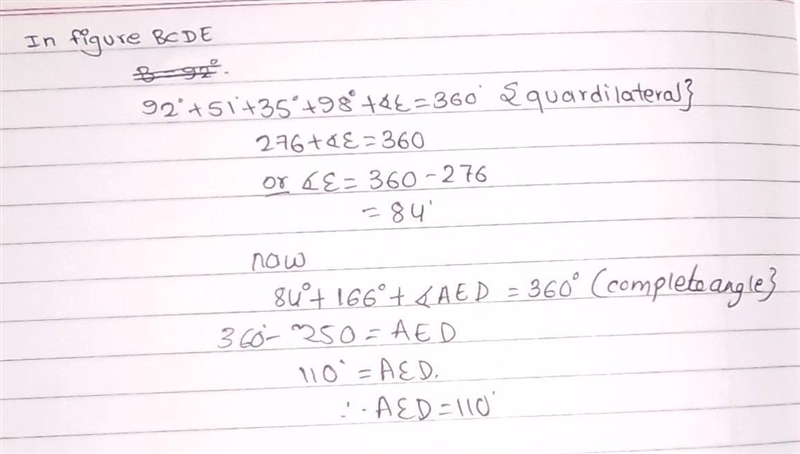 In figure BCDE
B = 92°.
92° + 51° + 35° + 98° + ∡E = 360° {quardilateral}
276 + ∡E = 360
or ∡E = 360 - 276
= 84°
now
84° + 166° + ∡AED = 360° (complete angle}
360 - 250 = AED
110° = AED.
∴ AED = 110°